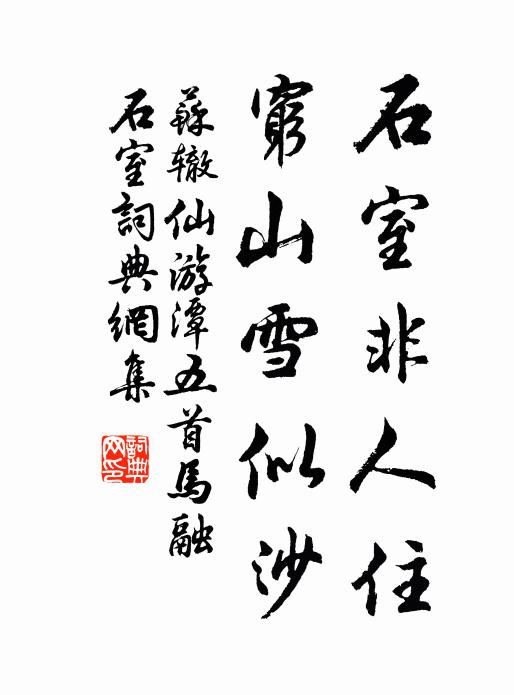 石室非人住
窮山雪似沙
蘇辙仙游潭五首馬融
石室詞典網集
詞典
网印